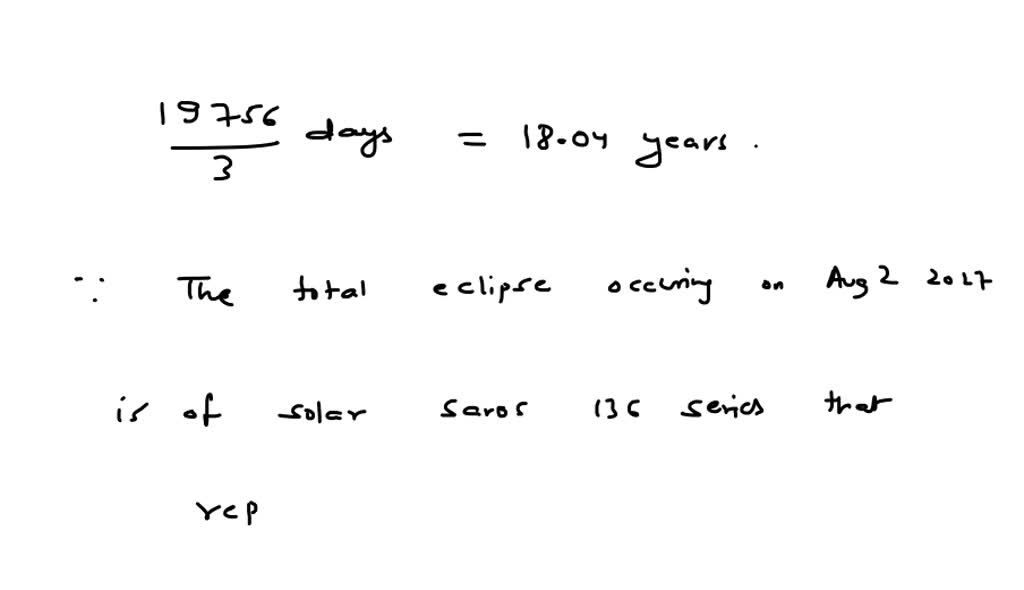 19756/3 days = 18.04 years.
∵ The total eclipse occuring on Aug 2 2027
is of solar saros 136 series that
rep